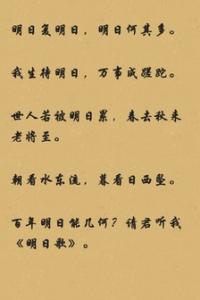 明日复明日，明日何其多。
我生待明日，万事成蹉跎。
世人若被明日累，春去秋来
老将至。
朝看水东流，暮看日西坠。
百年明日能几何？请君听我
《明日歌》。